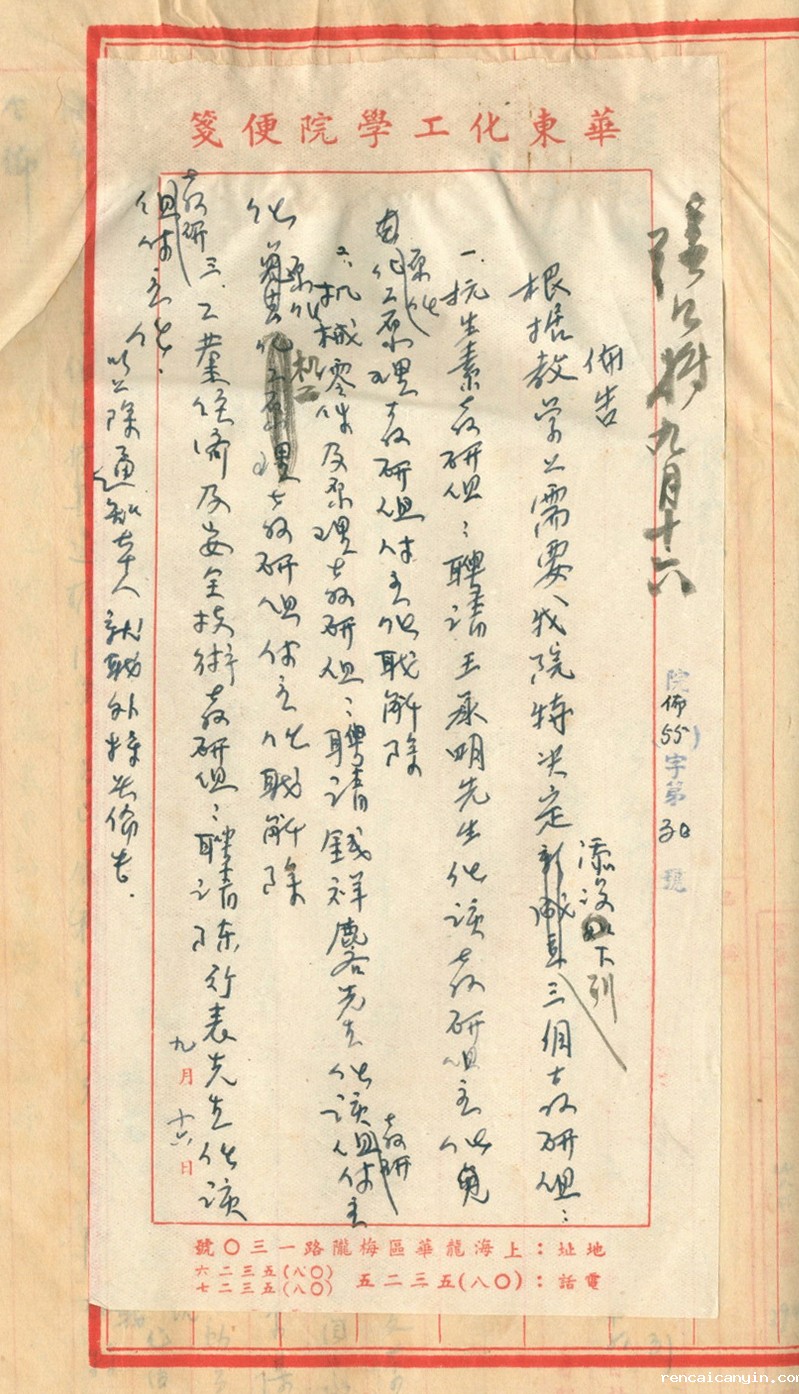 華東化工學院便箋
張江樹 九月十六
院佈(55)字第30號
佈告
根据教学上需要我院特决定添设下列三個教研組：
一.抗生素教研組：聘请王承明先生任该教研組主任
原任化工原理教研組付主任职解除
二.机械零件及原理教研組：聘请錢祥麐先生任该教研組付主
任 原任 化工 机 理教研組付主任职解除
三.工業经济及安全技術教研組：聘请陈行表先生任该
教研組付主任.
以上除通知本人就职外特此佈告.
九月十六日
地址：上海龍華區梅隴路一三〇號
電話：(〇八)五三二五
(八〇)五三二六
(八〇)五三二七
rencaicanyin.com